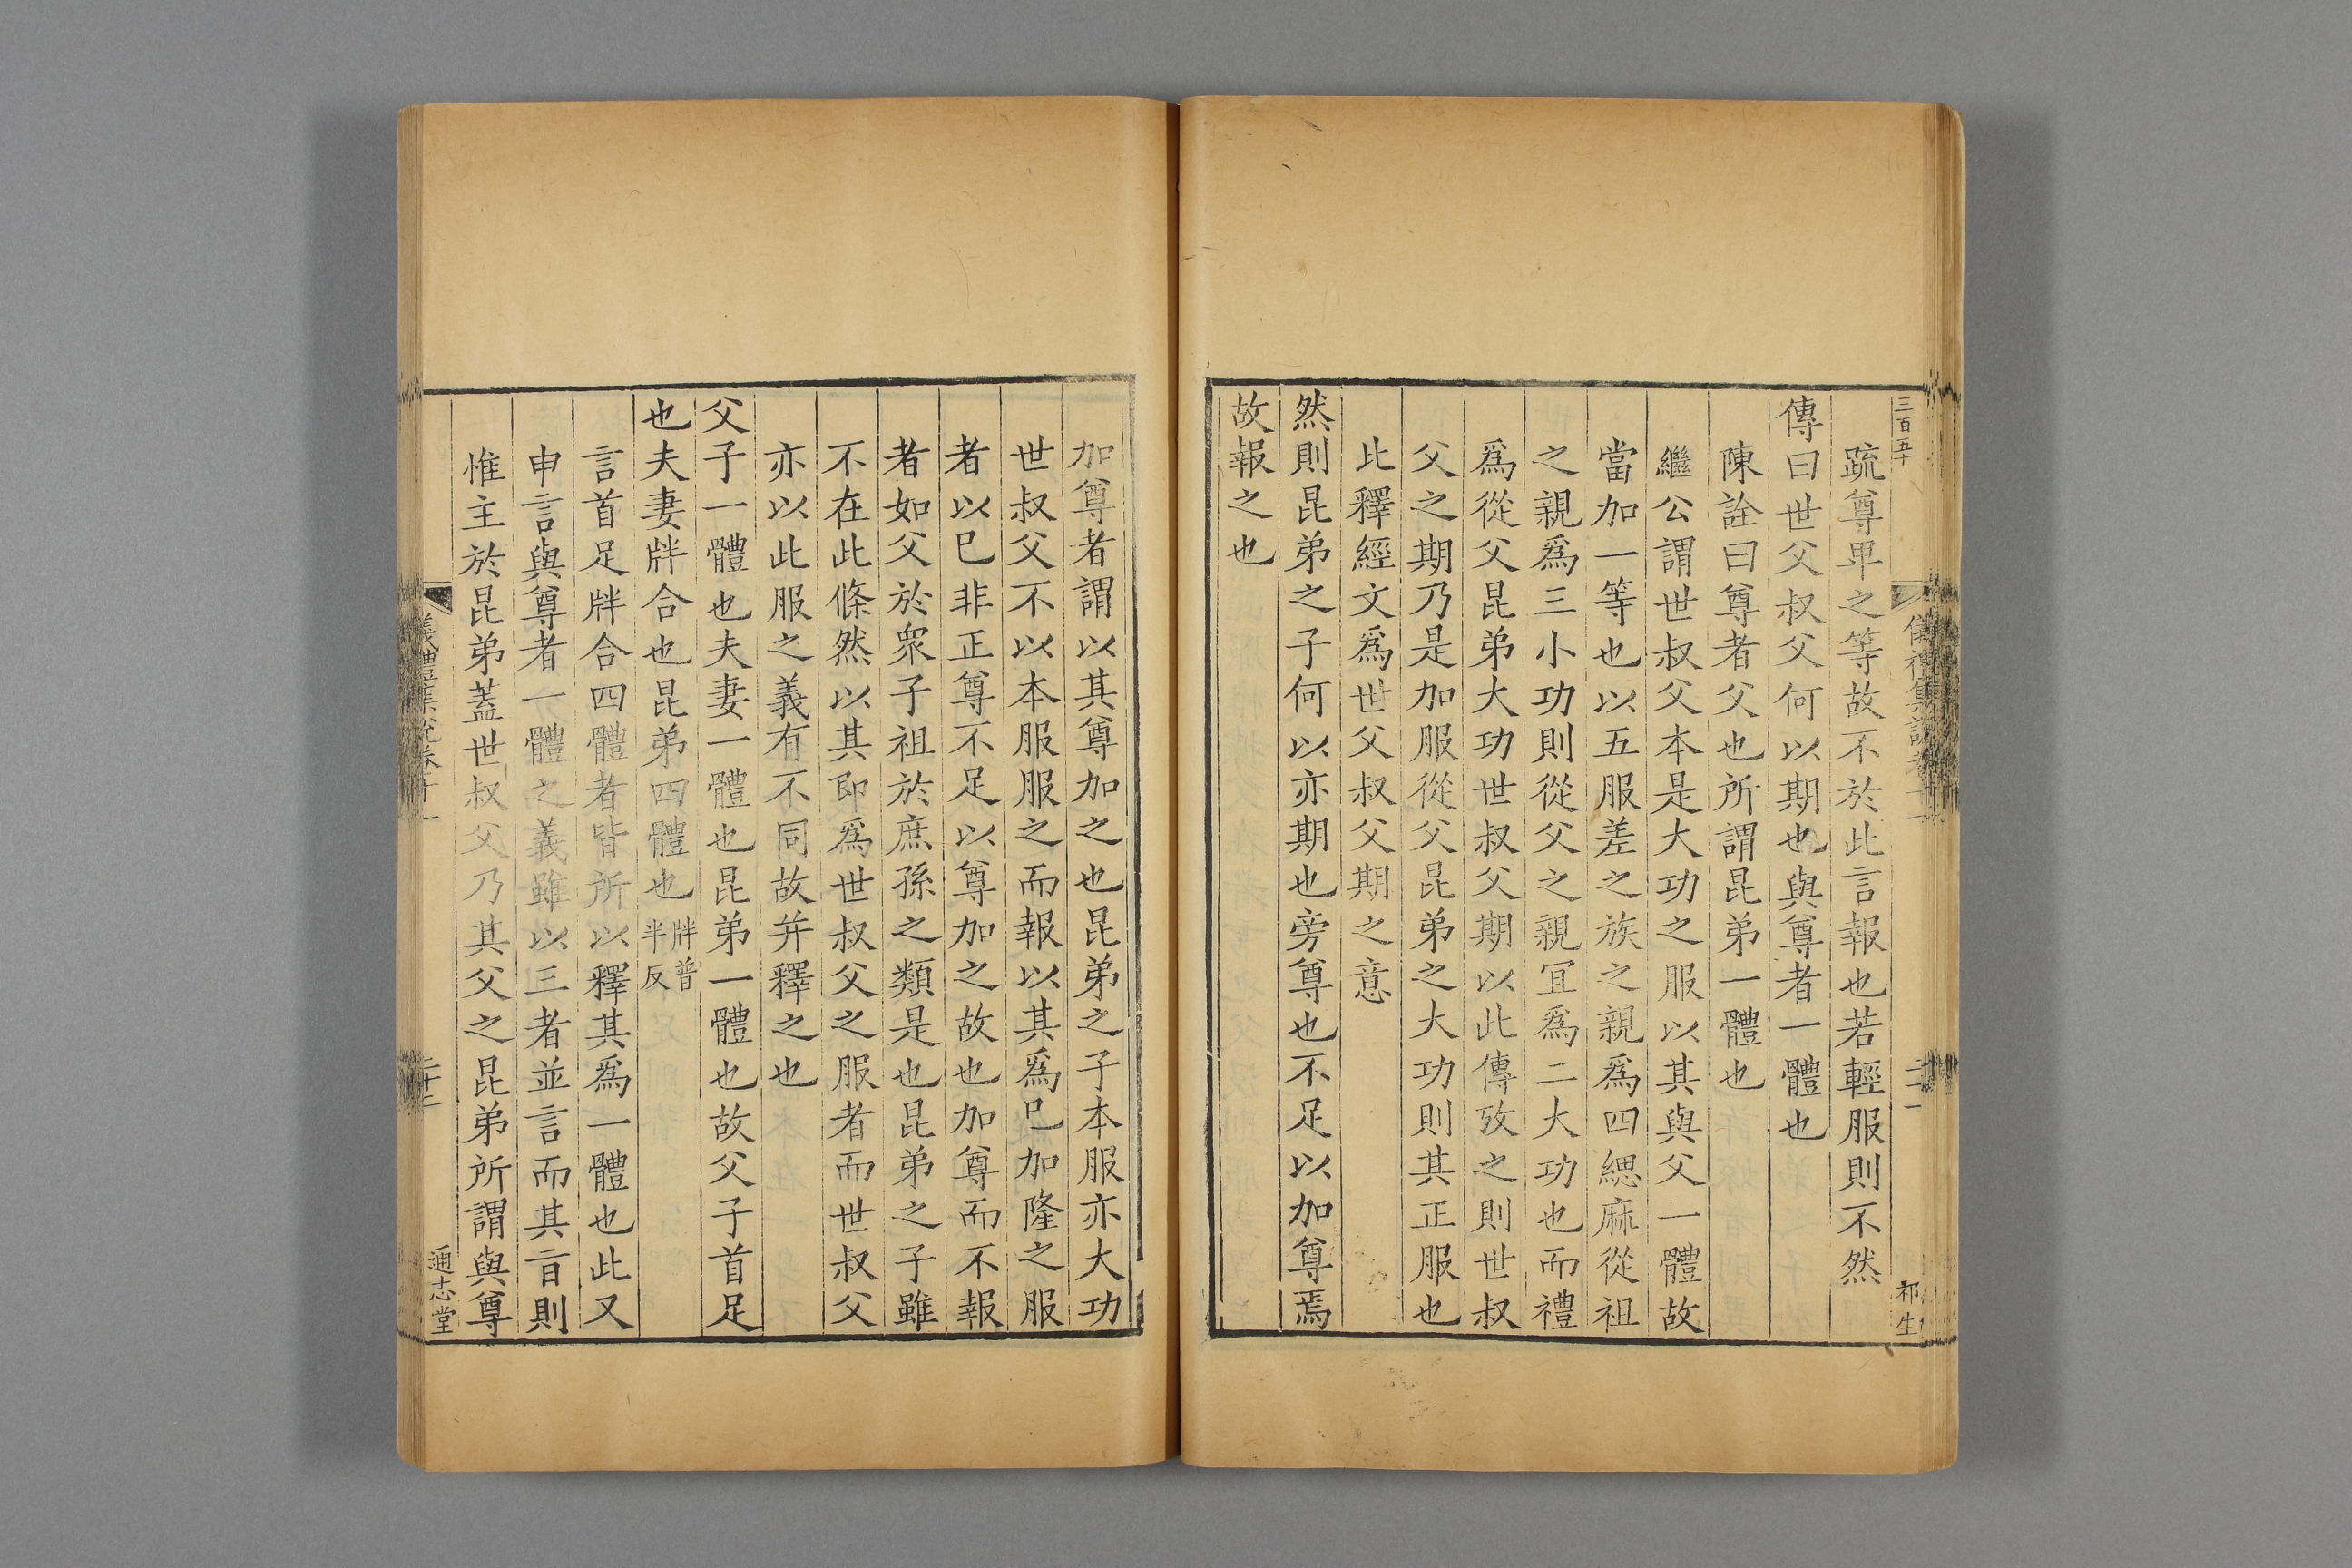 三百五十
疏尊卑之等故不於此言報也若輕服則不然
傳曰世父叔父何以期也與尊者一體也
陳詮曰尊者父也所謂昆弟一體也
繼公謂世叔父本是大功之服以其與父一體故
當加一等也以五服差之族之親爲四緦麻從祖
之親爲三小功則從父之親冝爲二大功也而禮
爲從父昆弟大功世叔父期以此傳攷之則世叔
父之期乃是加服從父昆弟之大功則其正服也
此釋經文爲世父叔父期之意
然則昆弟之子何以亦期也旁尊也不足以加尊焉
故報之也
祁生
加尊者謂以其尊加之也昆弟之子本服亦大功
世叔父不以本服服之而報以其爲巳加隆之服
者以巳非正尊不足以尊加之故也加尊而不報
者如父於衆子祖於庶孫之類是也昆弟之子雖
不在此條然以其即爲世叔父之服者而世叔父
亦以此服之義有不同故并釋之也
父子一體也夫妻一體也昆弟一體也故父子首足
也夫妻牉合也昆弟四體也牉普半反
言首足牉合四體者皆所以釋其爲一體也此又
申言與尊者一體之義雖以三者並言而其旨則
惟主於昆弟蓋世叔父乃其父之昆弟所謂與尊
通志堂